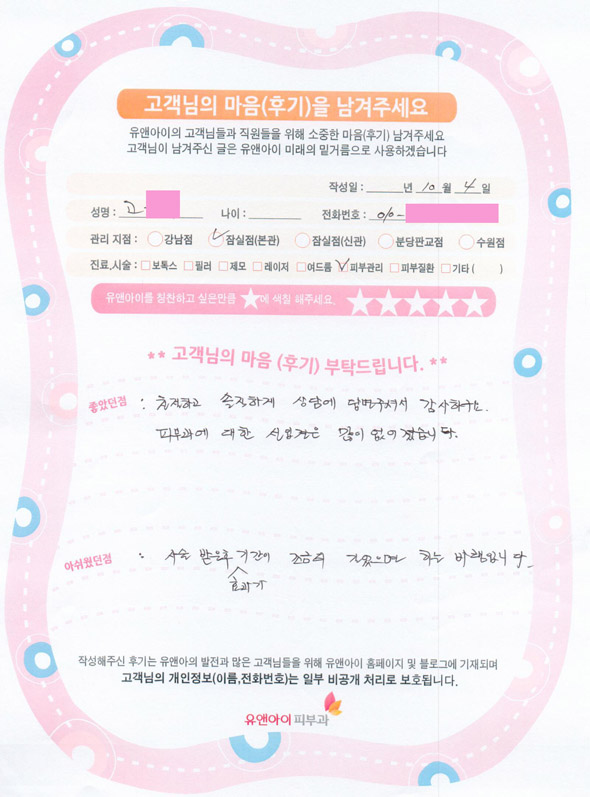 고객님의 마음(후기)을 남겨주세요
유앤아이의 고객님들과 직원들을 위해 소중한 마음(후기) 남겨주세요
고객님이 남겨주신 글은 유앤아이 미래의 밑거름으로 사용하겠습니다
작성일 : 년 10 월 4 일
성명 : 고 나이 : 전화번호 : 010-
관리 지점 : 강남점 잠실점(본관) 잠실점(신관) 분당판교점 수원점
진료,시술 : 보톡스 필러 제모 레이저 여드름 피부관리 피부질환 기타 ( )
유앤아이를 칭찬하고 싶은만큼 ★에 색칠 해주세요. ★★★★★
** 고객님의 마음 (후기) 부탁드립니다. **
좋았던점 : 친절하고 솔직하게 상담에 답변주셔서 감사하구요.
피부과에 대한 선입견은 많이 없어졌습니다.
아쉬웠던점 : 시술 받은후 기간이 조금더 길었으면 하는 바램입니다.
효과가
작성해주신 후기는 유앤아의 발전과 많은 고객님들을 위해 유앤아이 홈페이지 및 블로그에 기재되며
고객님의 개인정보(이름,전화번호)는 일부 비공개 처리로 보호됩니다.
유앤아이 피부과